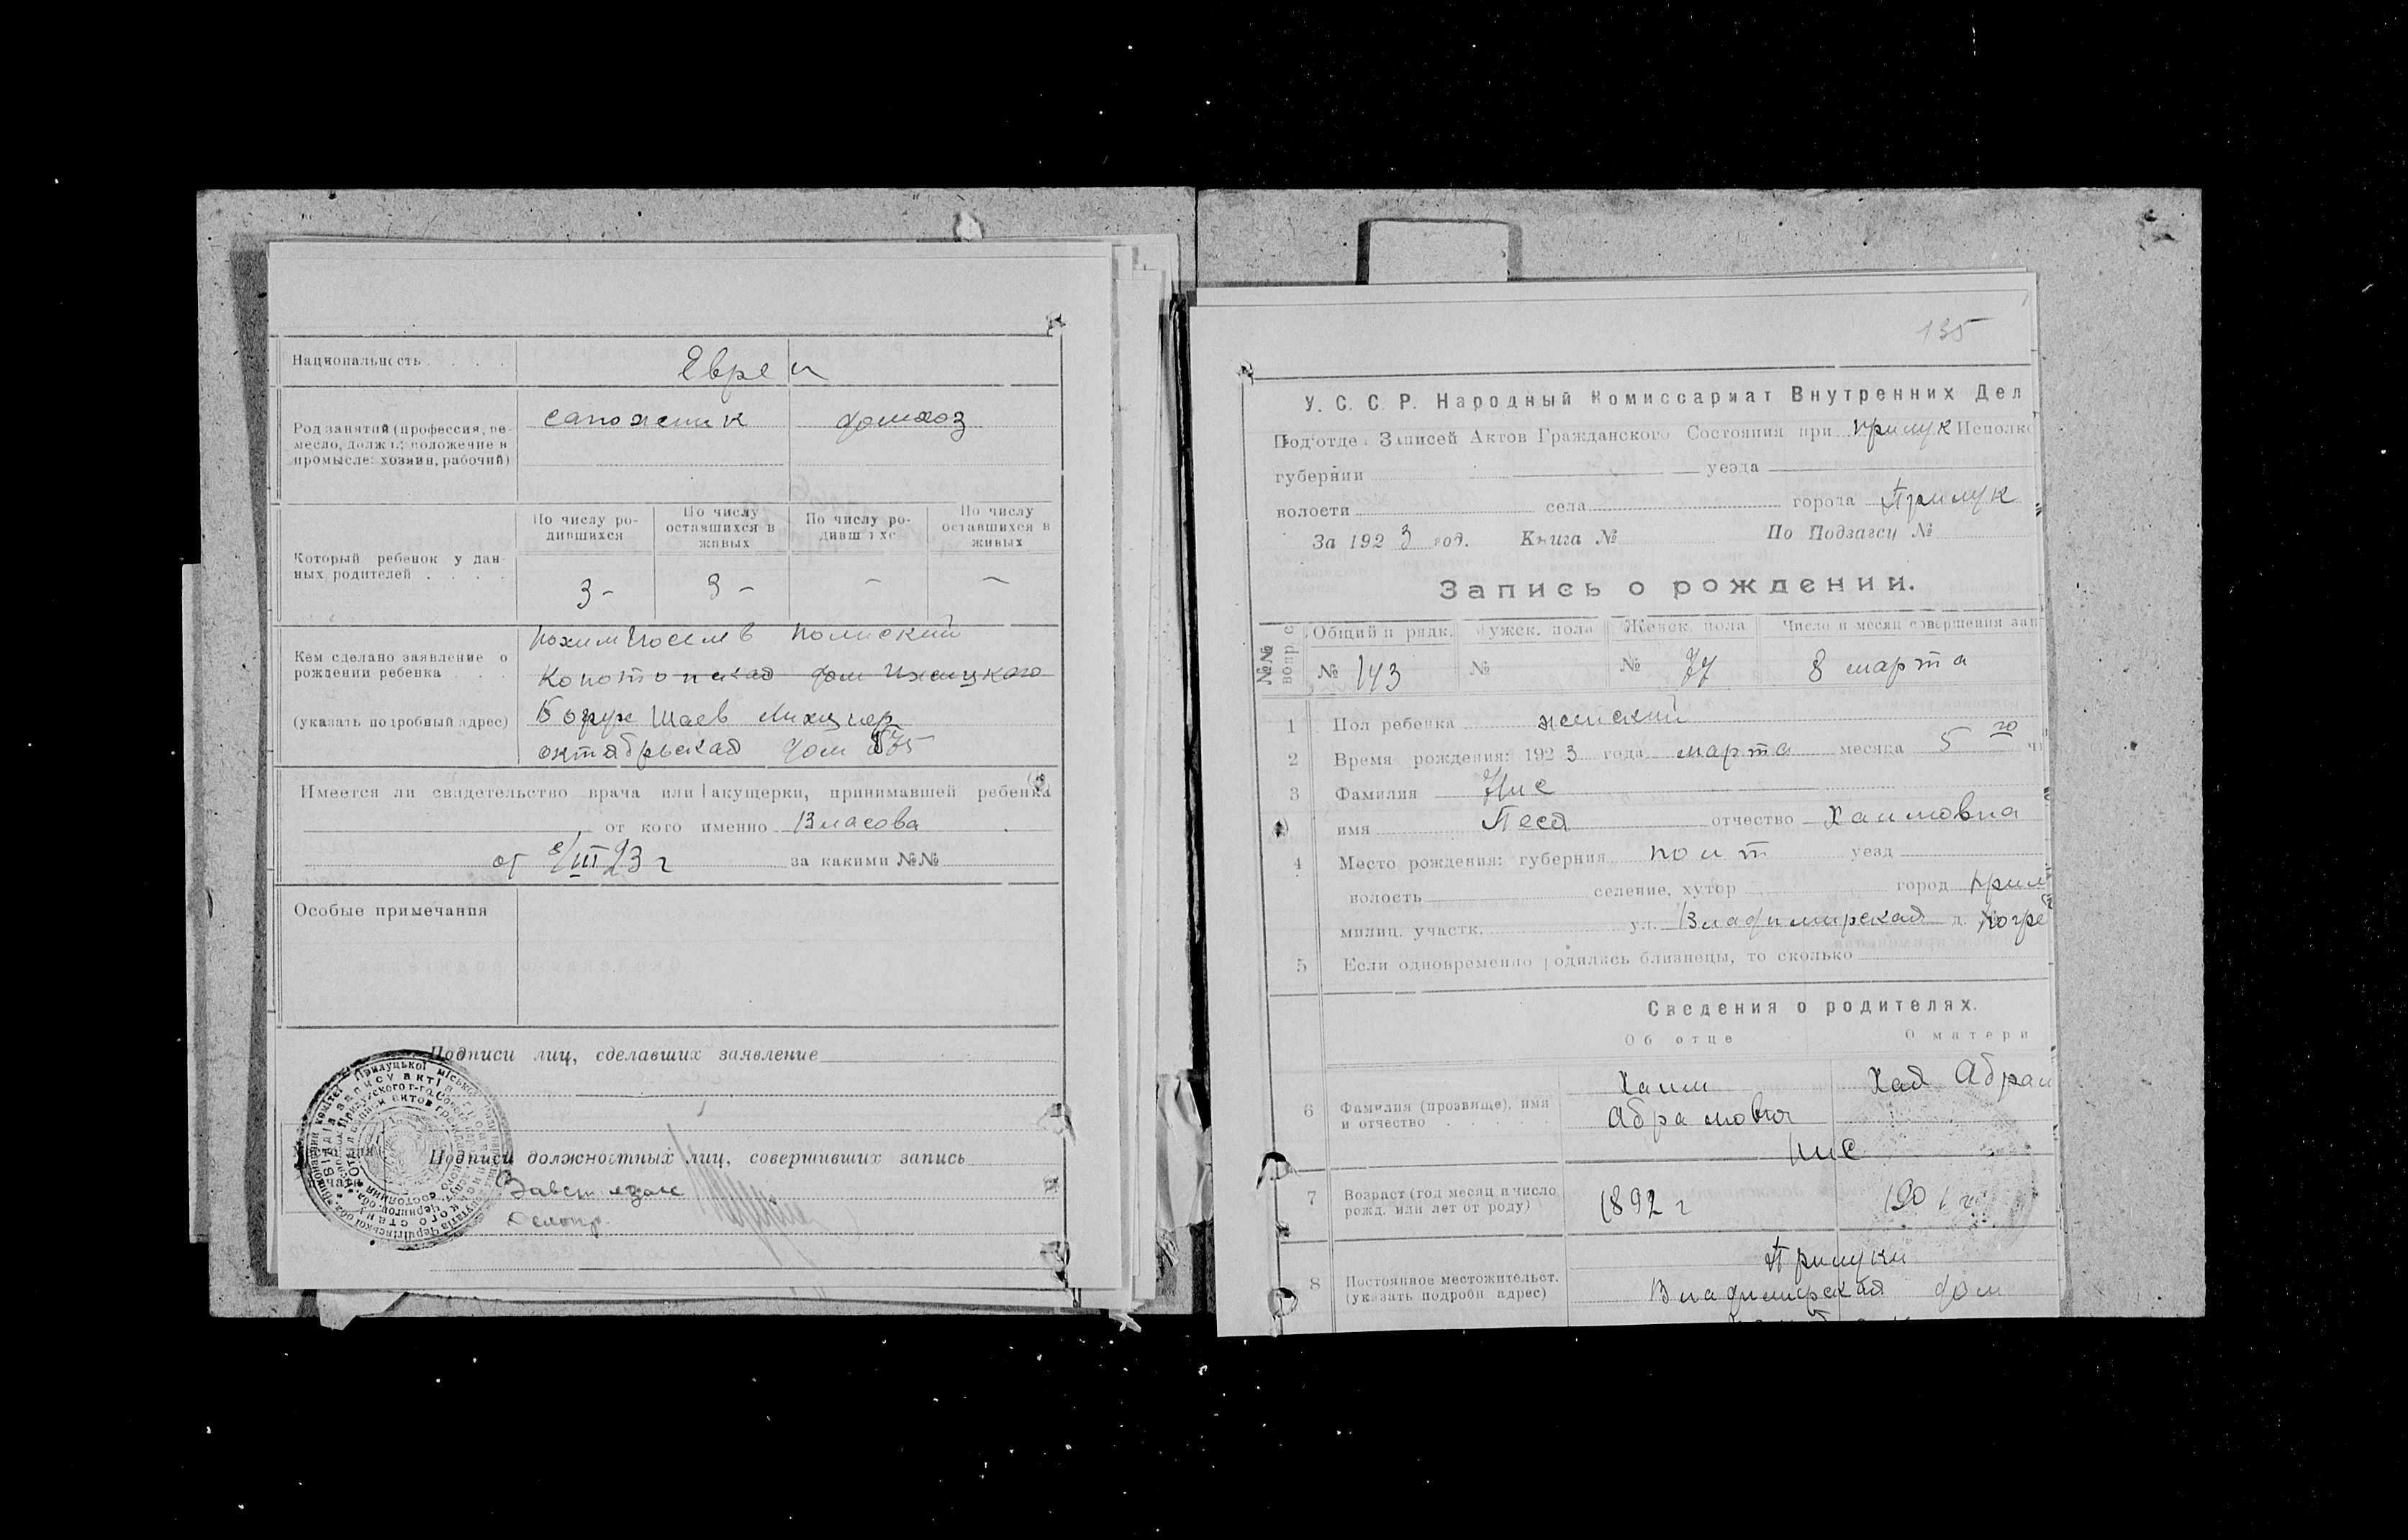 Национальность
Евреи
Род занятий (профессия, ре-
месло, должн.; положение в
промысле: хозяин, рабочий)
сапожник
домхоз
Который ребенок у дан-
ных родителей
По числу ро-
дившихся
По числу
оставшихся в
живых
По числу ро-
дивш хс
По числу
оставшихся в
живых
3 -
3 -
-
-
Кем сделано заявление о
рождении ребенка
(указать подробный адрес)
Конотопская дом
Борух Шаев
октябрьская дом 35
Имеется ли свидетельство врача или акушерки, принимавшей ребенка
от кого именно Власова
от 8/III 23 г за какими №№
Особые примечания
Подписи лиц, сделавших заявление
Подписи должностных лиц, совершивших запись
135
У. С. С. Р. Народный Комиссариат Внутренних Дел
Под'отдел Записей Актов Гражданского Состояния при Прилук Исполко
губернии уезда
волости села города Прилук
За 1923 год. Книга № По Подзагсу №
Запись о рождении.
№№ вопр с
Общий п рядк. Мужск. пола Женск. пола Число и месяц совершения зап
№ 143 № № 77 8 марта
1 Пол ребенка женский
2 Время рождения: 1923 года марта месяца 5 го чи
3 Фамилия Нис
имя Песя отчество Хаимовна
4 Место рождения: губерния Полт уезд
волость селение, хутор город Прил
милиц. участк. ул. Владимирская д. Погре
5 Если одновременно родились близнецы, то сколько
Сведения о родителях.
Об отце О матери
6 Фамилия (прозвище), имя
и отчество
Хаим
Абрамович
Хая Абрам
Нис
7 Возраст (год месяц и число
рожд. или лет от роду)
1892 г
1901 г
8 Постоянное местожительст.
(указать подробн адрес)
Прилуки
Владимирская дом